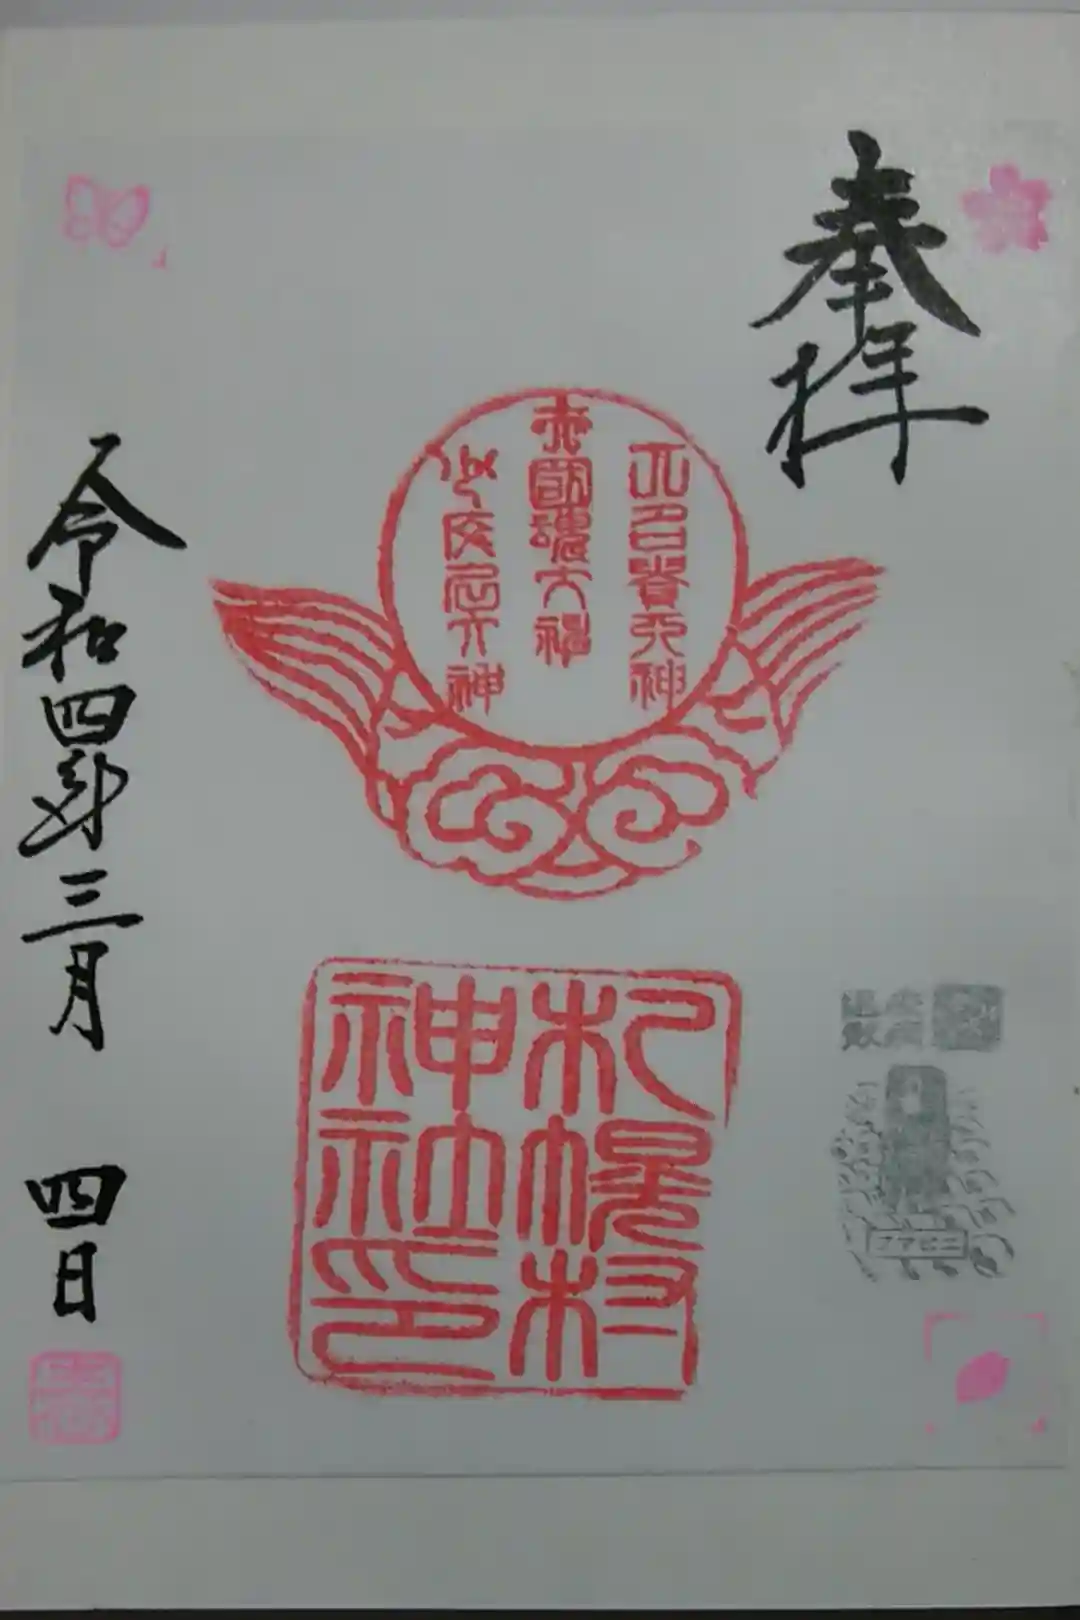 奉拝
大己貴大神
大國魂大神
少彦名大神
札幌村
神社印
令和四年三月四日